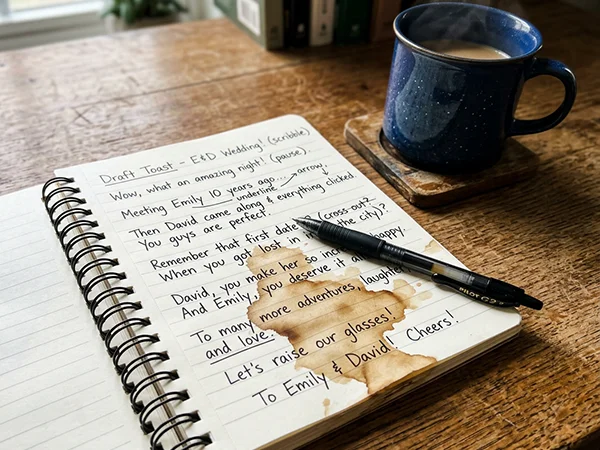 Draft Toast - E&D Wedding! (scribble)
Wow, what an amazing night! (pause).
Meeting Emily 10 years ago... → arrow,
underline
Then David came along & everything clicked.
You guys are perfect.
Remember that first date (cross-out?
When you got lost in the city)?
David, you make her so happy.
And Emily, you deserve it
To many more adventures, laughter
and love.
Let's raise our glasses!
To Emily & David! Cheers!
PILOT G2